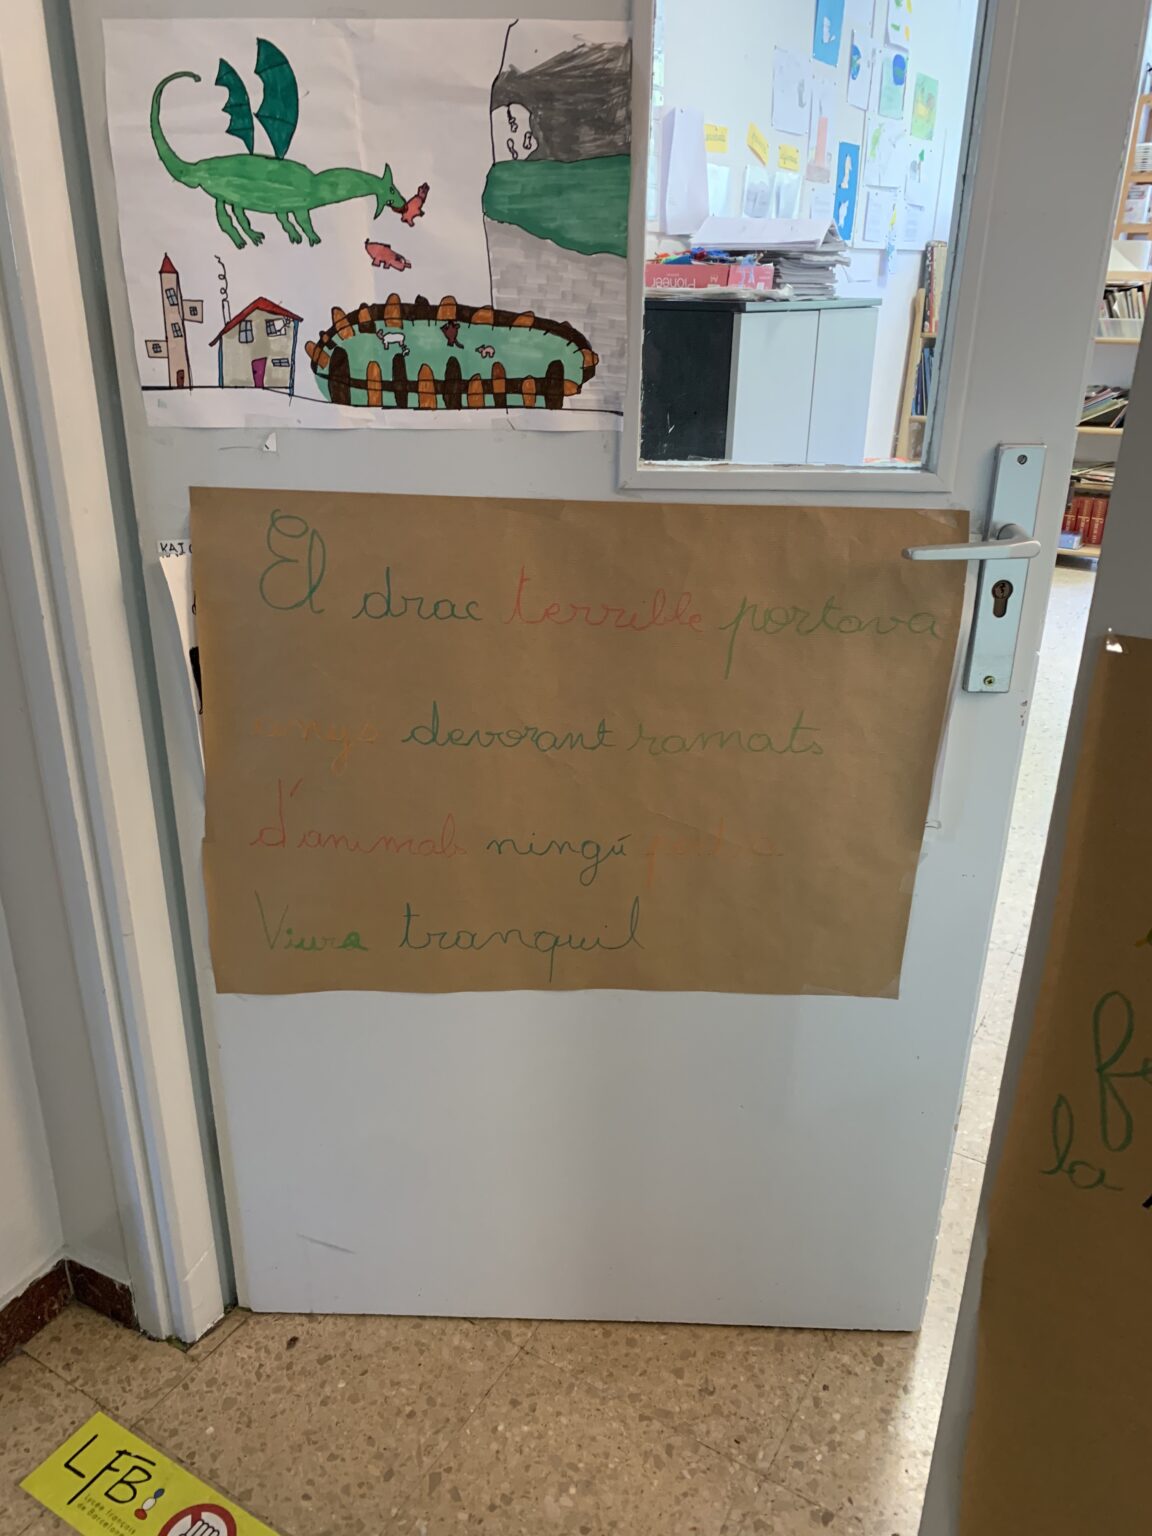 El drac terrible portava
anys devorant ramats
d'animals ningú podia
Viura tranquil
KAI
Pioneer
la
LFB
Lycée français
de Barcelone